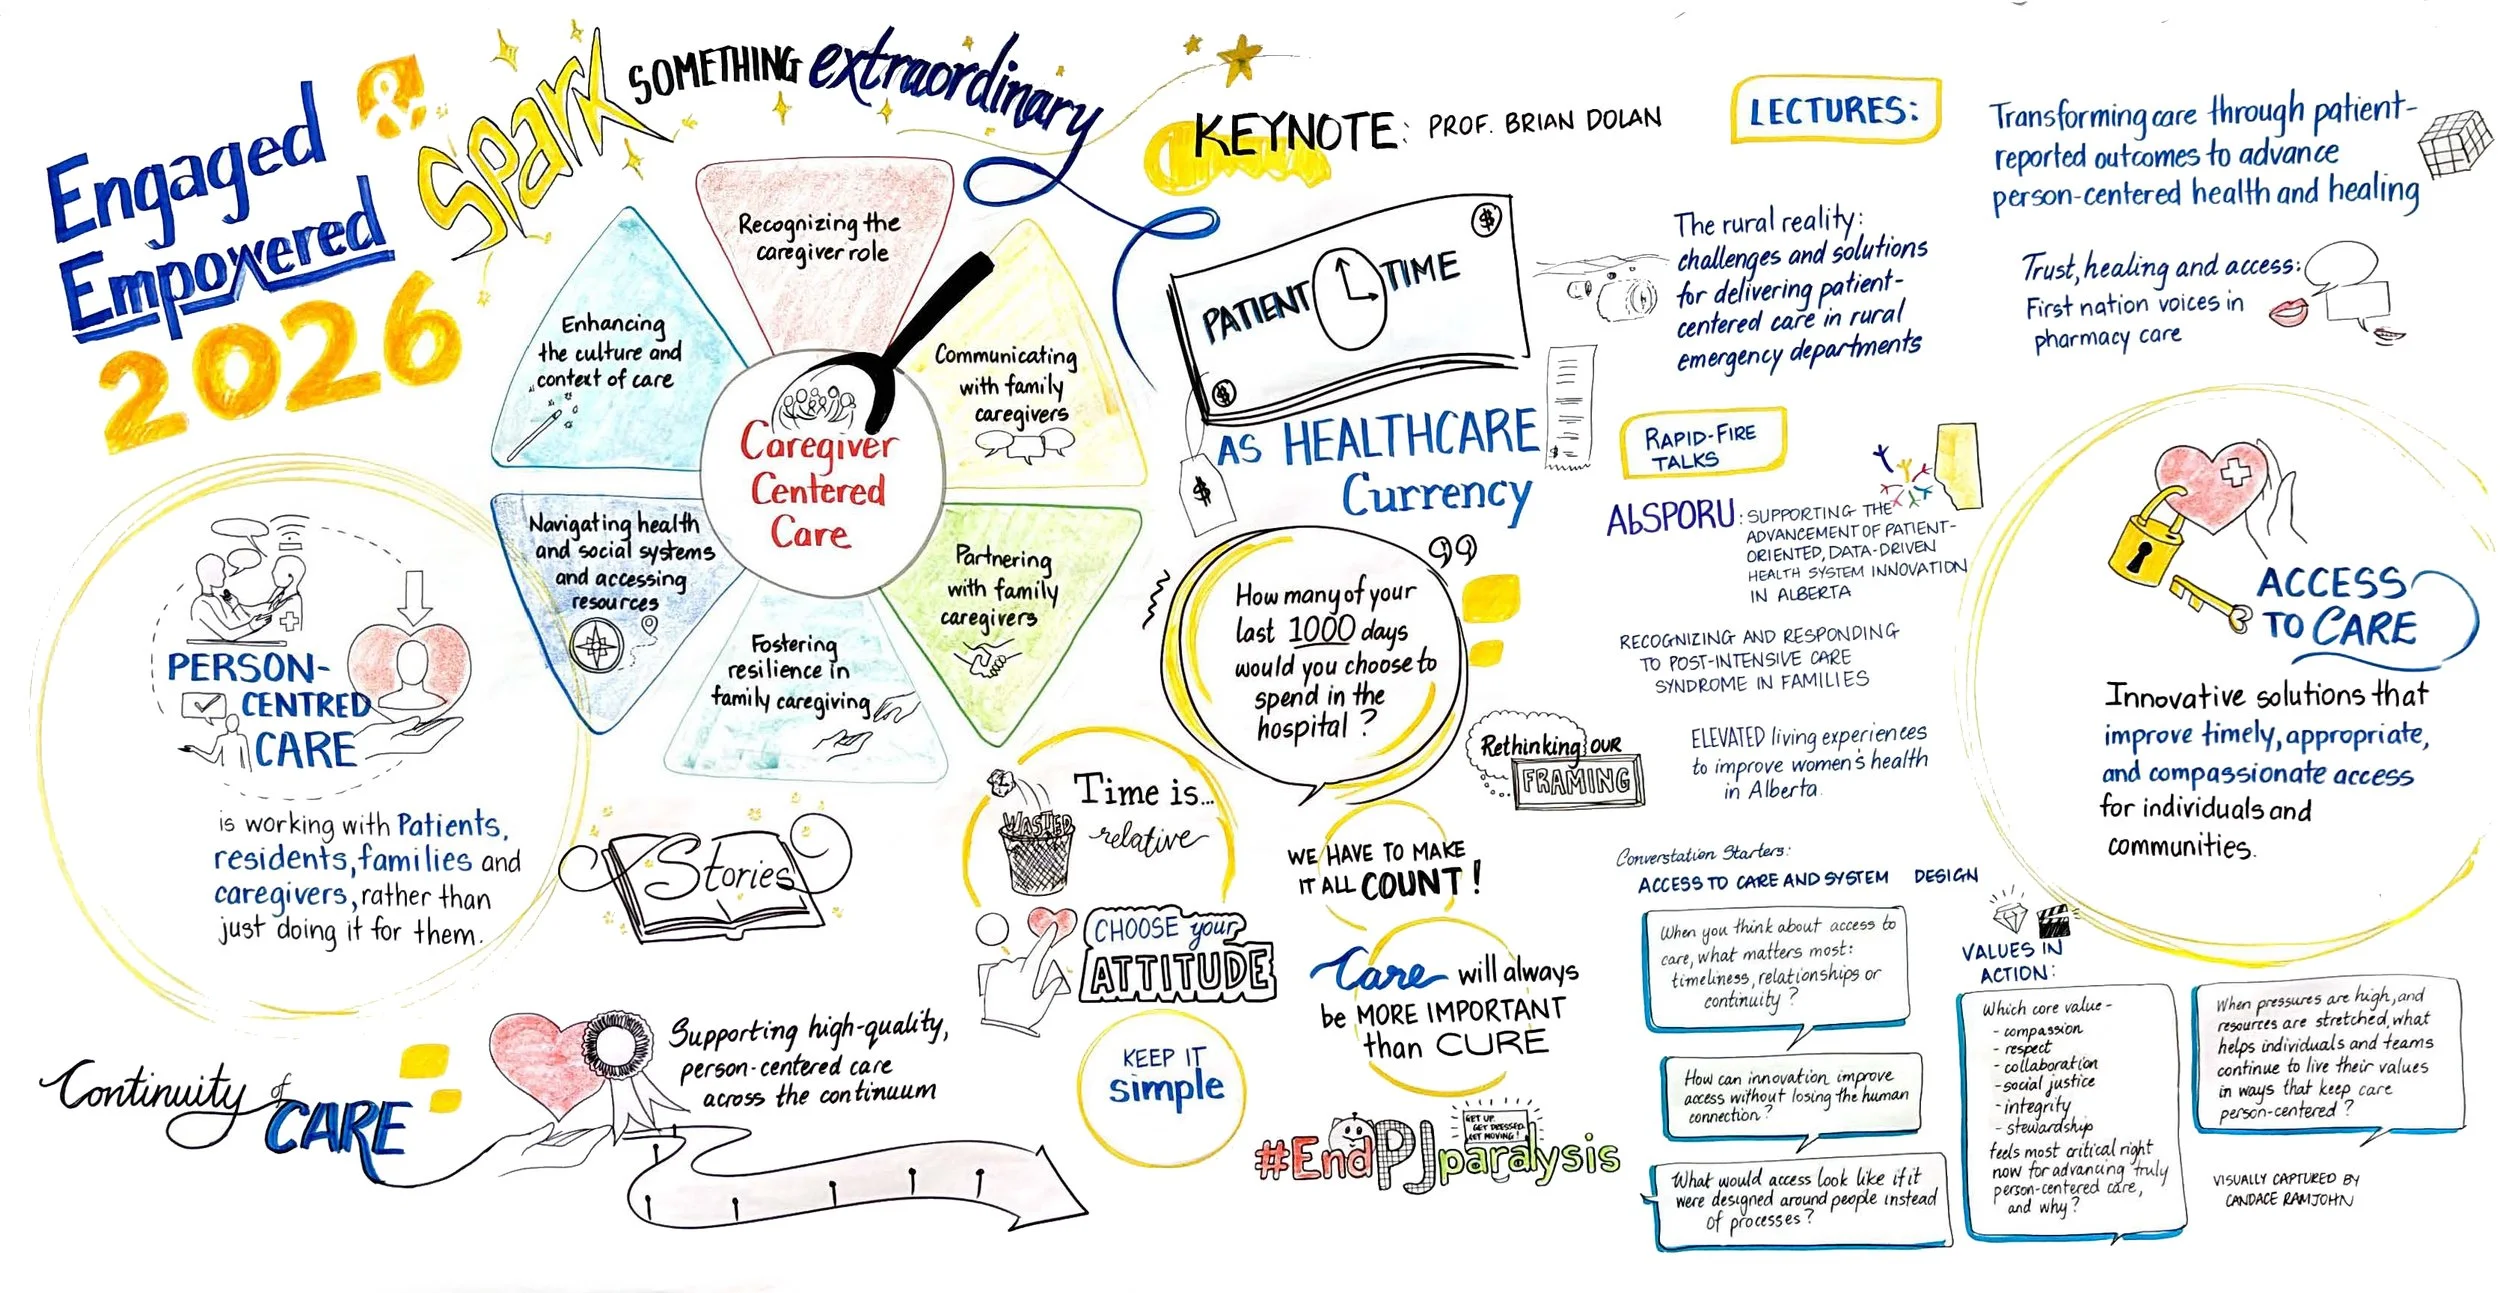 Engaged
Empowered
2026
Spark SOMETHING extraordinary
Recognizing the
caregiver role
Enhancing
the culture and
context of care
Communicating
with family
caregivers
Caregiver
Centered
Care
Navigating health
and social systems
and accessing
resources
Partnering
with family
caregivers
Fostering
resilience in
family caregiving
PERSON-
CENTRED
CARE
is working with Patients,
residents, families and
caregivers, rather than
just doing it for them.
Stories
Continuity of
CARE
Supporting high-quality,
person-centered care
across the continuum
KEYNOTE: PROF. BRIAN DOLAN
PATIENT TIME
$
$
AS HEALTHCARE
Currency
$
$
How many of your
last 1000 days
would you choose to
spend in the
hospital?
Time is...
relative
WASTED
Rethinking OUR
FRAMING
WE HAVE TO MAKE
IT ALL COUNT!
CHOOSE your
ATTITUDE
Care will always
be MORE IMPORTANT
than CURE
KEEP IT
simple
GET UP
GET DRESSED
GET MOVING!
#EndPJparalysis
LECTURES:
Transforming care through patient-
reported outcomes to advance
person-centered health and healing
The rural reality:
challenges and solutions
for delivering patient-
centered care in rural
emergency departments
Trust, healing and access:
First nation voices in
pharmacy care
RAPID-FIRE
TALKS
AbSPORU: SUPPORTING THE
ADVANCEMENT OF PATIENT-
ORIENTED, DATA-DRIVEN
HEALTH SYSTEM INNOVATION
IN ALBERTA
RECOGNIZING AND RESPONDING
TO POST-INTENSIVE CARE
SYNDROME IN FAMILIES
ELEVATED living experiences
to improve women's health
in Alberta.
ACCESS
TO CARE
Innovative solutions that
improve timely, appropriate,
and compassionate access
for individuals and
communities.
Converstation Starters:
ACCESS TO CARE AND SYSTEM DESIGN
When you think about access to
care, what matters most:
timeliness, relationships or
continuity?
How can innovation improve
access without losing the human
connection?
What would access look like if it
were designed around people instead
of processes?
VALUES IN
ACTION:
Which core value -
- compassion
- respect
- collaboration
- social justice
- integrity
- stewardship
feels most critical right
now for advancing truly
person-centered care,
and why?
When pressures are high, and
resources are stretched, what
helps individuals and teams
continue to live their values
in ways that keep care
person-centered?
VISUALLY CAPTURED BY
CANDACE RAMJOHN